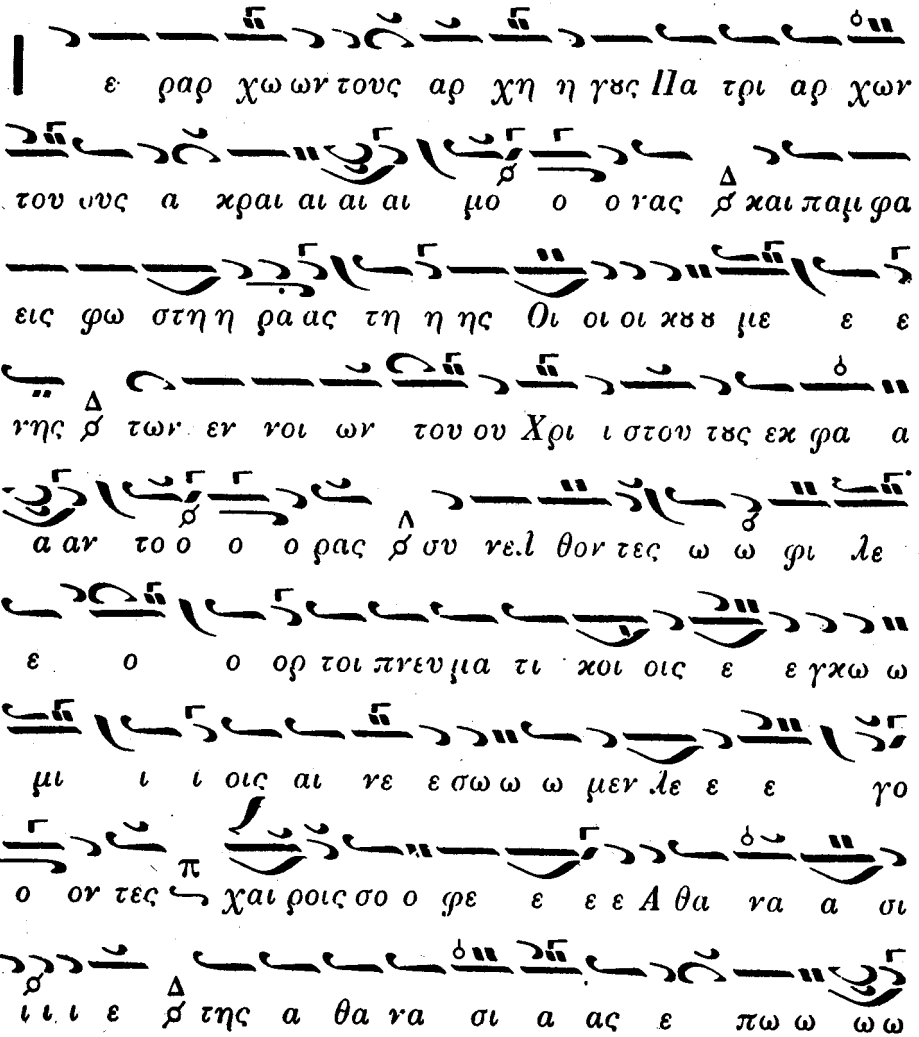 Ι ε ραρ χω ων τους αρ χη η γȣς Πα τρι αρ χων
του ους α κραι αι αι αι μο ο ο νας Δ και παμ φα
εις φω στη η ρα ας τη η ης Οι οι οι κȣ ȣ με ε ε
νης Δ των εν νοι ων του ου Χρι ι στου τȣς εκ φα α
α αν το ο ο ο ρας Δ συ νελ θον τες ω ω φι λε
ε ο ο ορ τοι πνευ μα τι κοι οις ε ε γκω ω
μι ι ι οις αι νε ε σω ω ω μεν λε ε ε γο
ο ον τες π χαι ροις σο ο φε ε ε ε Α θα να α σι
ι ι ι ε Δ της α θα να σι α ας ε πω ω ω ω